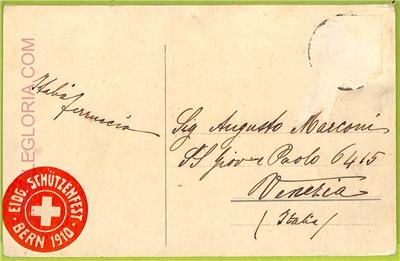 LEGLORIA.COM
Italia
ferruccio
Sig Augusto Marconi
SS Giov e Paolo 6415
Venezia
(Italia)
EIDG. SCHÜTZENFEST
BERN 1910